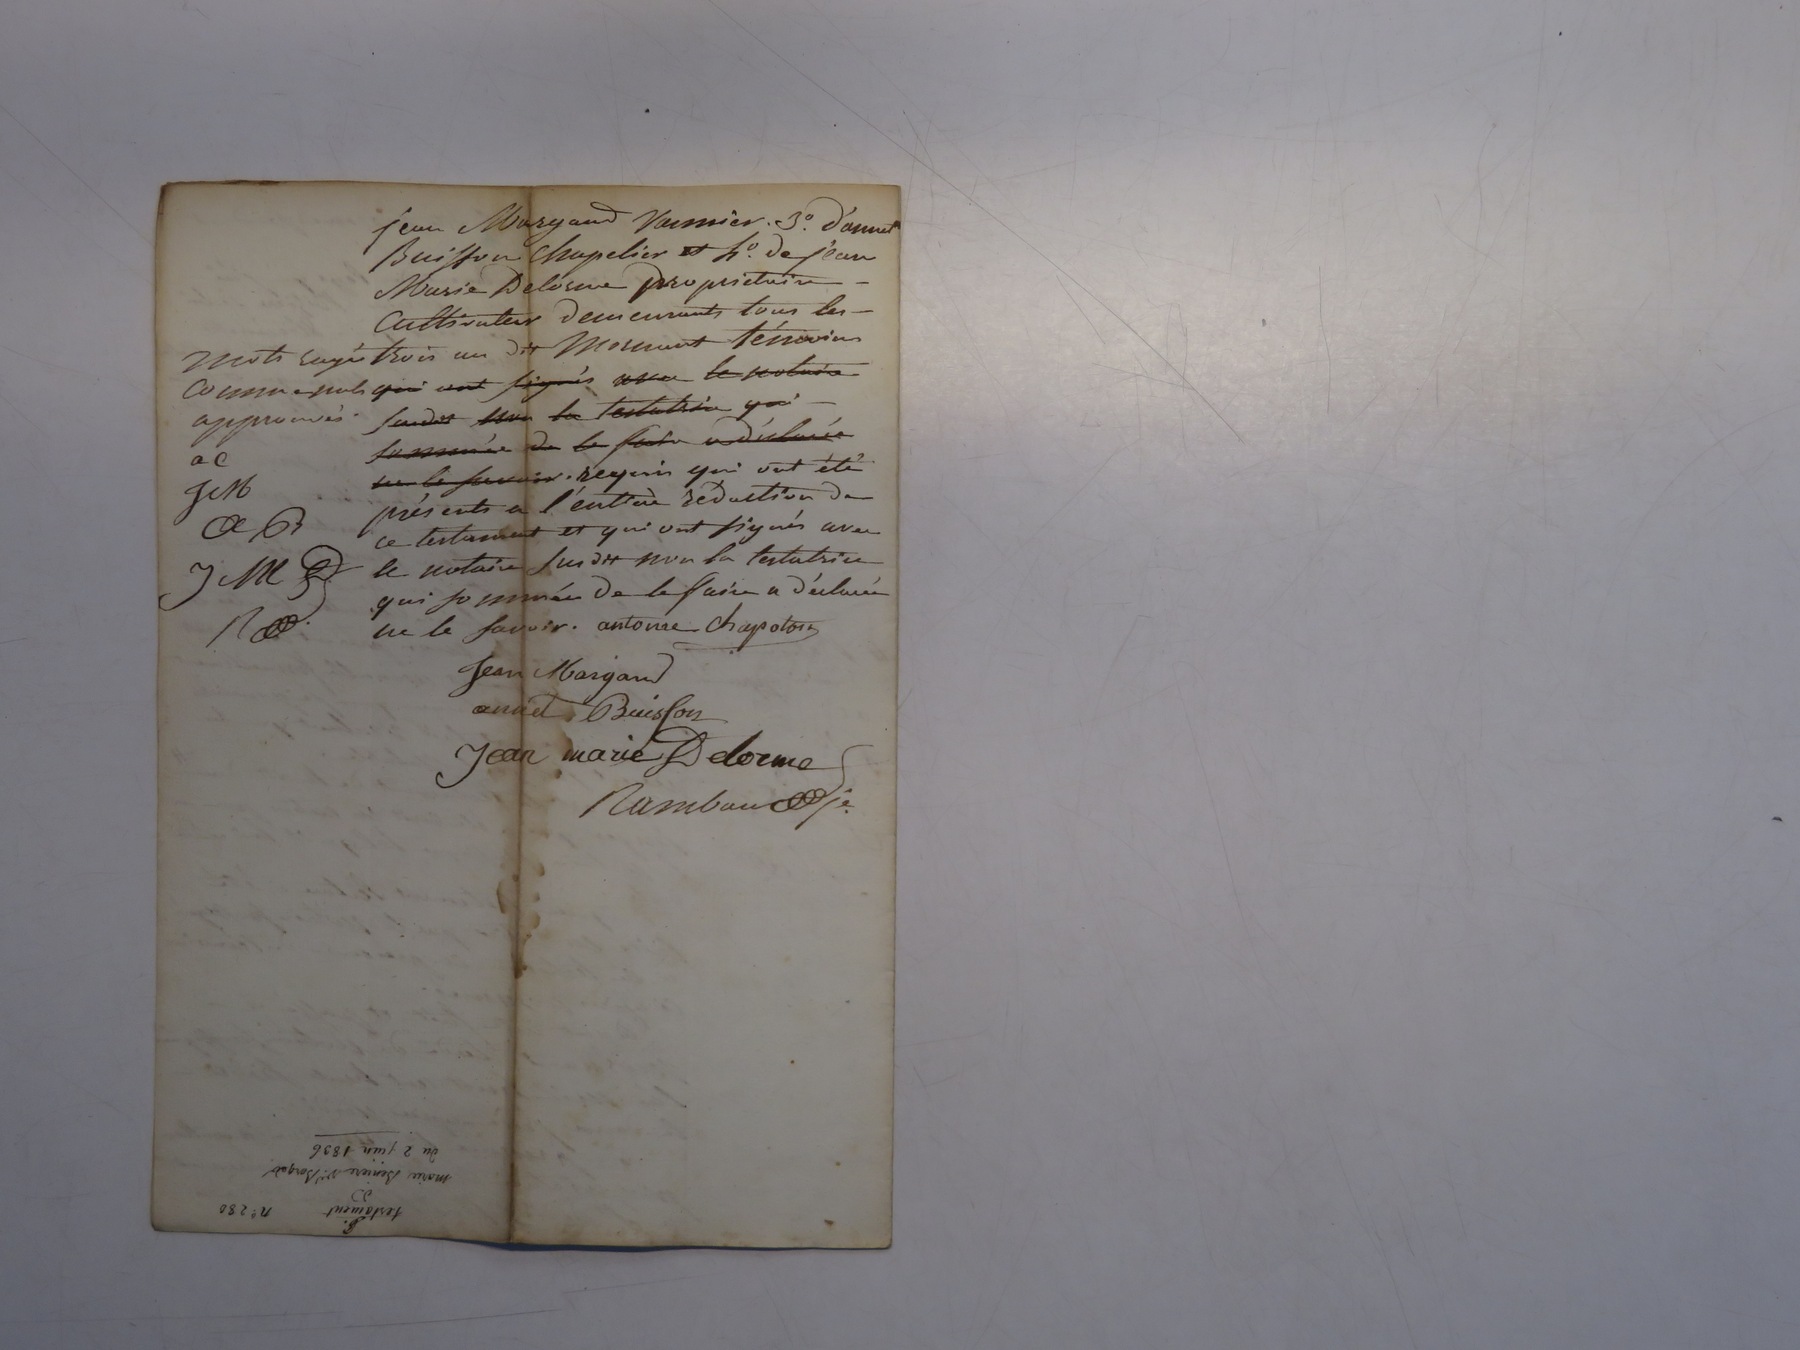 jean Margaud Vannier. 3º. d'annet
Buisson Chapelier et 4º. de jean
Marie Delorme propriétaire -
Cultivateur demeurants tous les -
trois au dit Mornant témoins
qui ont signés avec le notaire
susdit non la testatrice qui -
sommée de le faire a déclarée
ne le savoir. requis qui ont été
présents a l'entière rédaction de
ce testament et qui ont signés avec
le notaire susdit non la testatrice
qui sommée de le faire a déclarée
ne le savoir. antoine Chapoton
mots rayés
comme nuls
approuvés.
a C
J M
a B
J. M D
R
Jean Margaud
annet Buisson
Jean marie Delorme
Rambaud je.
testament
marie
du 2 juin 1836
nº 280